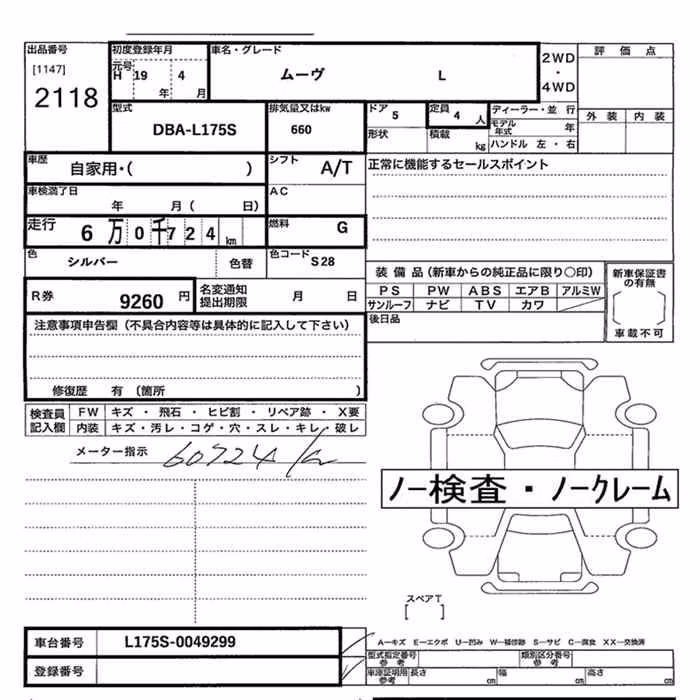 出品番号
[1147]
2118
初度登録年月
元号
H 19 4
年 月
車名・グレード
ムーヴ L
2WD
・
4WD
評価点
外装 内装
型式
DBA-L175S
排気量又はkw
660
ドア 5
定員 4 人
形状
積載 kg
ディーラー・並行
モデル年式 年
ハンドル 左・右
車歴
自家用・( )
シフト
A/T
正常に機能するセールスポイント
車検満了日
年 月( 日)
AC
走行
6万0千724km
燃料
G
色
シルバー
色替
色コード S28
R券 9260円
名変通知
提出期限
月 日
装備品(新車からの純正品に限り○印)
PS PW ABS エアB アルミW
サンルーフ ナビ TV カワ
後日品
新車保証書
の有無
車載不可
注意事項申告欄(不具合内容等は具体的に記入して下さい)
修復歴 有(箇所 )
検査員
記入欄
FW キズ・飛石・ヒビ割・リペア跡・X要
内装 キズ・汚レ・コゲ・穴・スレ・キレ・破レ
メーター指示 60724km
ノー検査・ノークレーム
スペアT
[ ]
車台番号 L175S-0049299
登録番号
A―キズ E―エクボ U―凹み W―補修跡 S―サビ C―腐食 XX―交換済
型式指定番号
参考
類別区分番号
参考
車庫証明用
参考
長さ cm 幅 cm 高さ cm